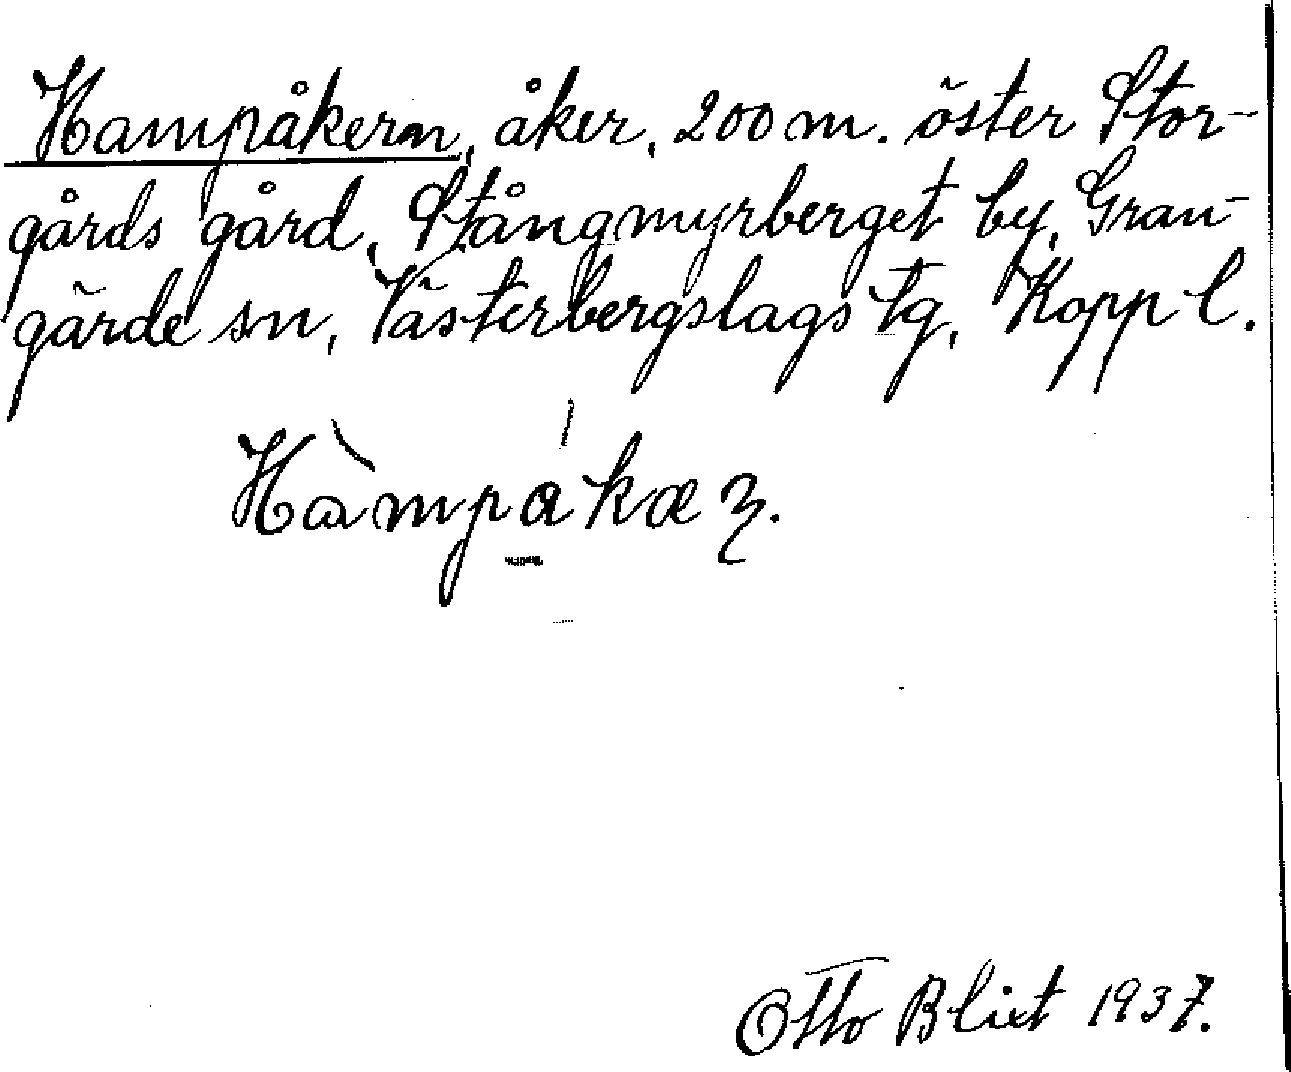 Hampåkern, åker, 200 m. öster Stor-
gårds gård, Stångmyrberget by, Gran-
gärde sn, Västerbergslags tg, Kopp l.
Otto Blixt 1937.